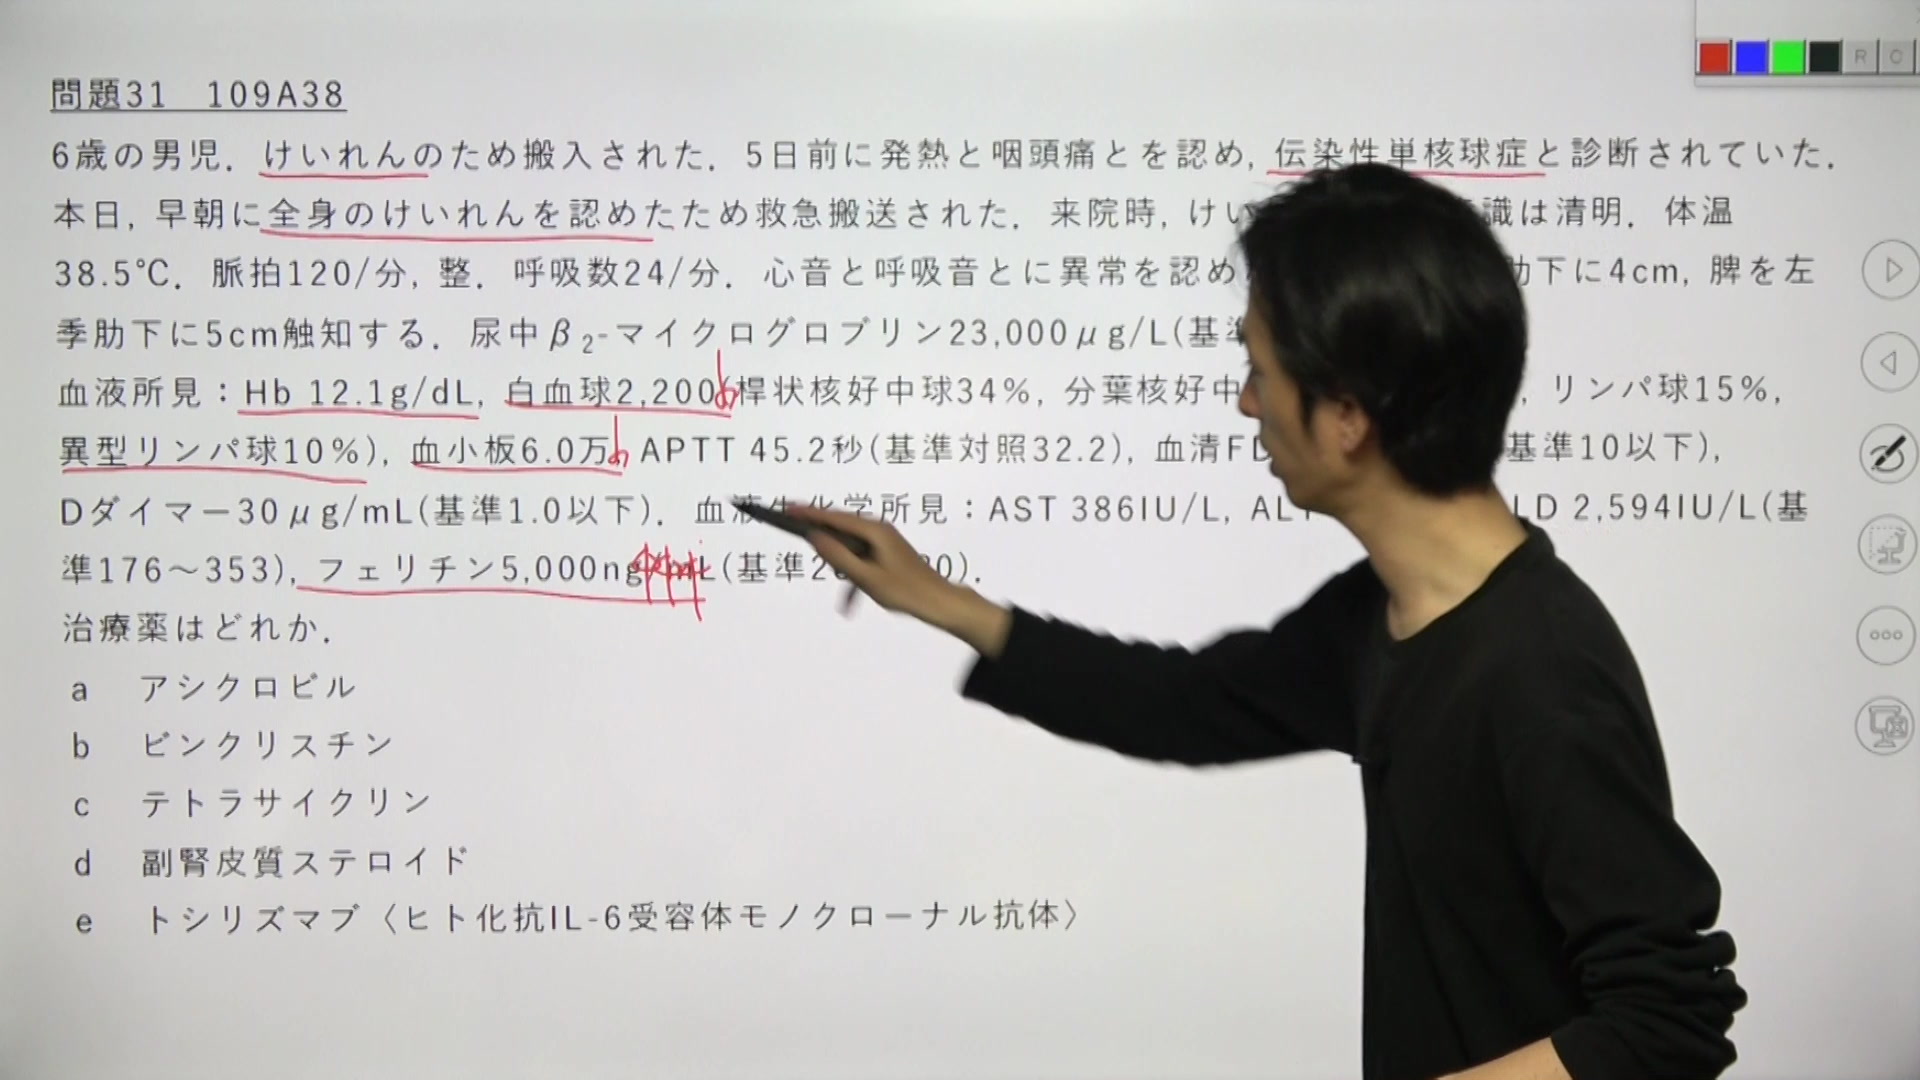 問題31　109A38
6歳の男児．けいれんのため搬入された．5日前に発熱と咽頭痛とを認め，伝染性単核球症と診断されていた．
本日，早朝に全身のけいれんを認めたため救急搬送された．来院時，けい 識は清明．体温
38.5℃．脈拍120/分，整．呼吸数24/分．心音と呼吸音とに異常を認め 肋下に4cm，脾を左
季肋下に5cm触知する．尿中β2-マイクログロブリン23,000μg/L(基準
血液所見：Hb 12.1g/dL，白血球2,200(桿状核好中球34%，分葉核好中 ，リンパ球15%，
異型リンパ球10%)，血小板6.0万，APTT 45.2秒(基準対照32.2)，血清FD 基準10以下)，
Dダイマー30μg/mL(基準1.0以下)．血液生化学所見：AST 386IU/L，AL LD 2,594IU/L(基
準176〜353)，フェリチン5,000ng/mL(基準2 0)．
治療薬はどれか．
a　アシクロビル
b　ビンクリスチン
c　テトラサイクリン
d　副腎皮質ステロイド
e　トシリズマブ〈ヒト化抗IL-6受容体モノクローナル抗体〉
R C